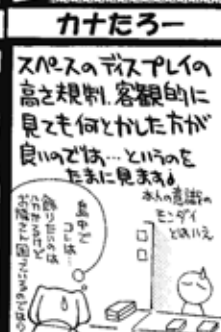 カナたろー
スペースのディスプレイの
高さ規制。客観的に
見ても何とかした方が
良いのでは…というのを
たまに見ます
本人の意識の
モンダイ
とはいえ
島中で
コレは…
飾りたいのは
わかるけど
お隣さん困っているのでは?